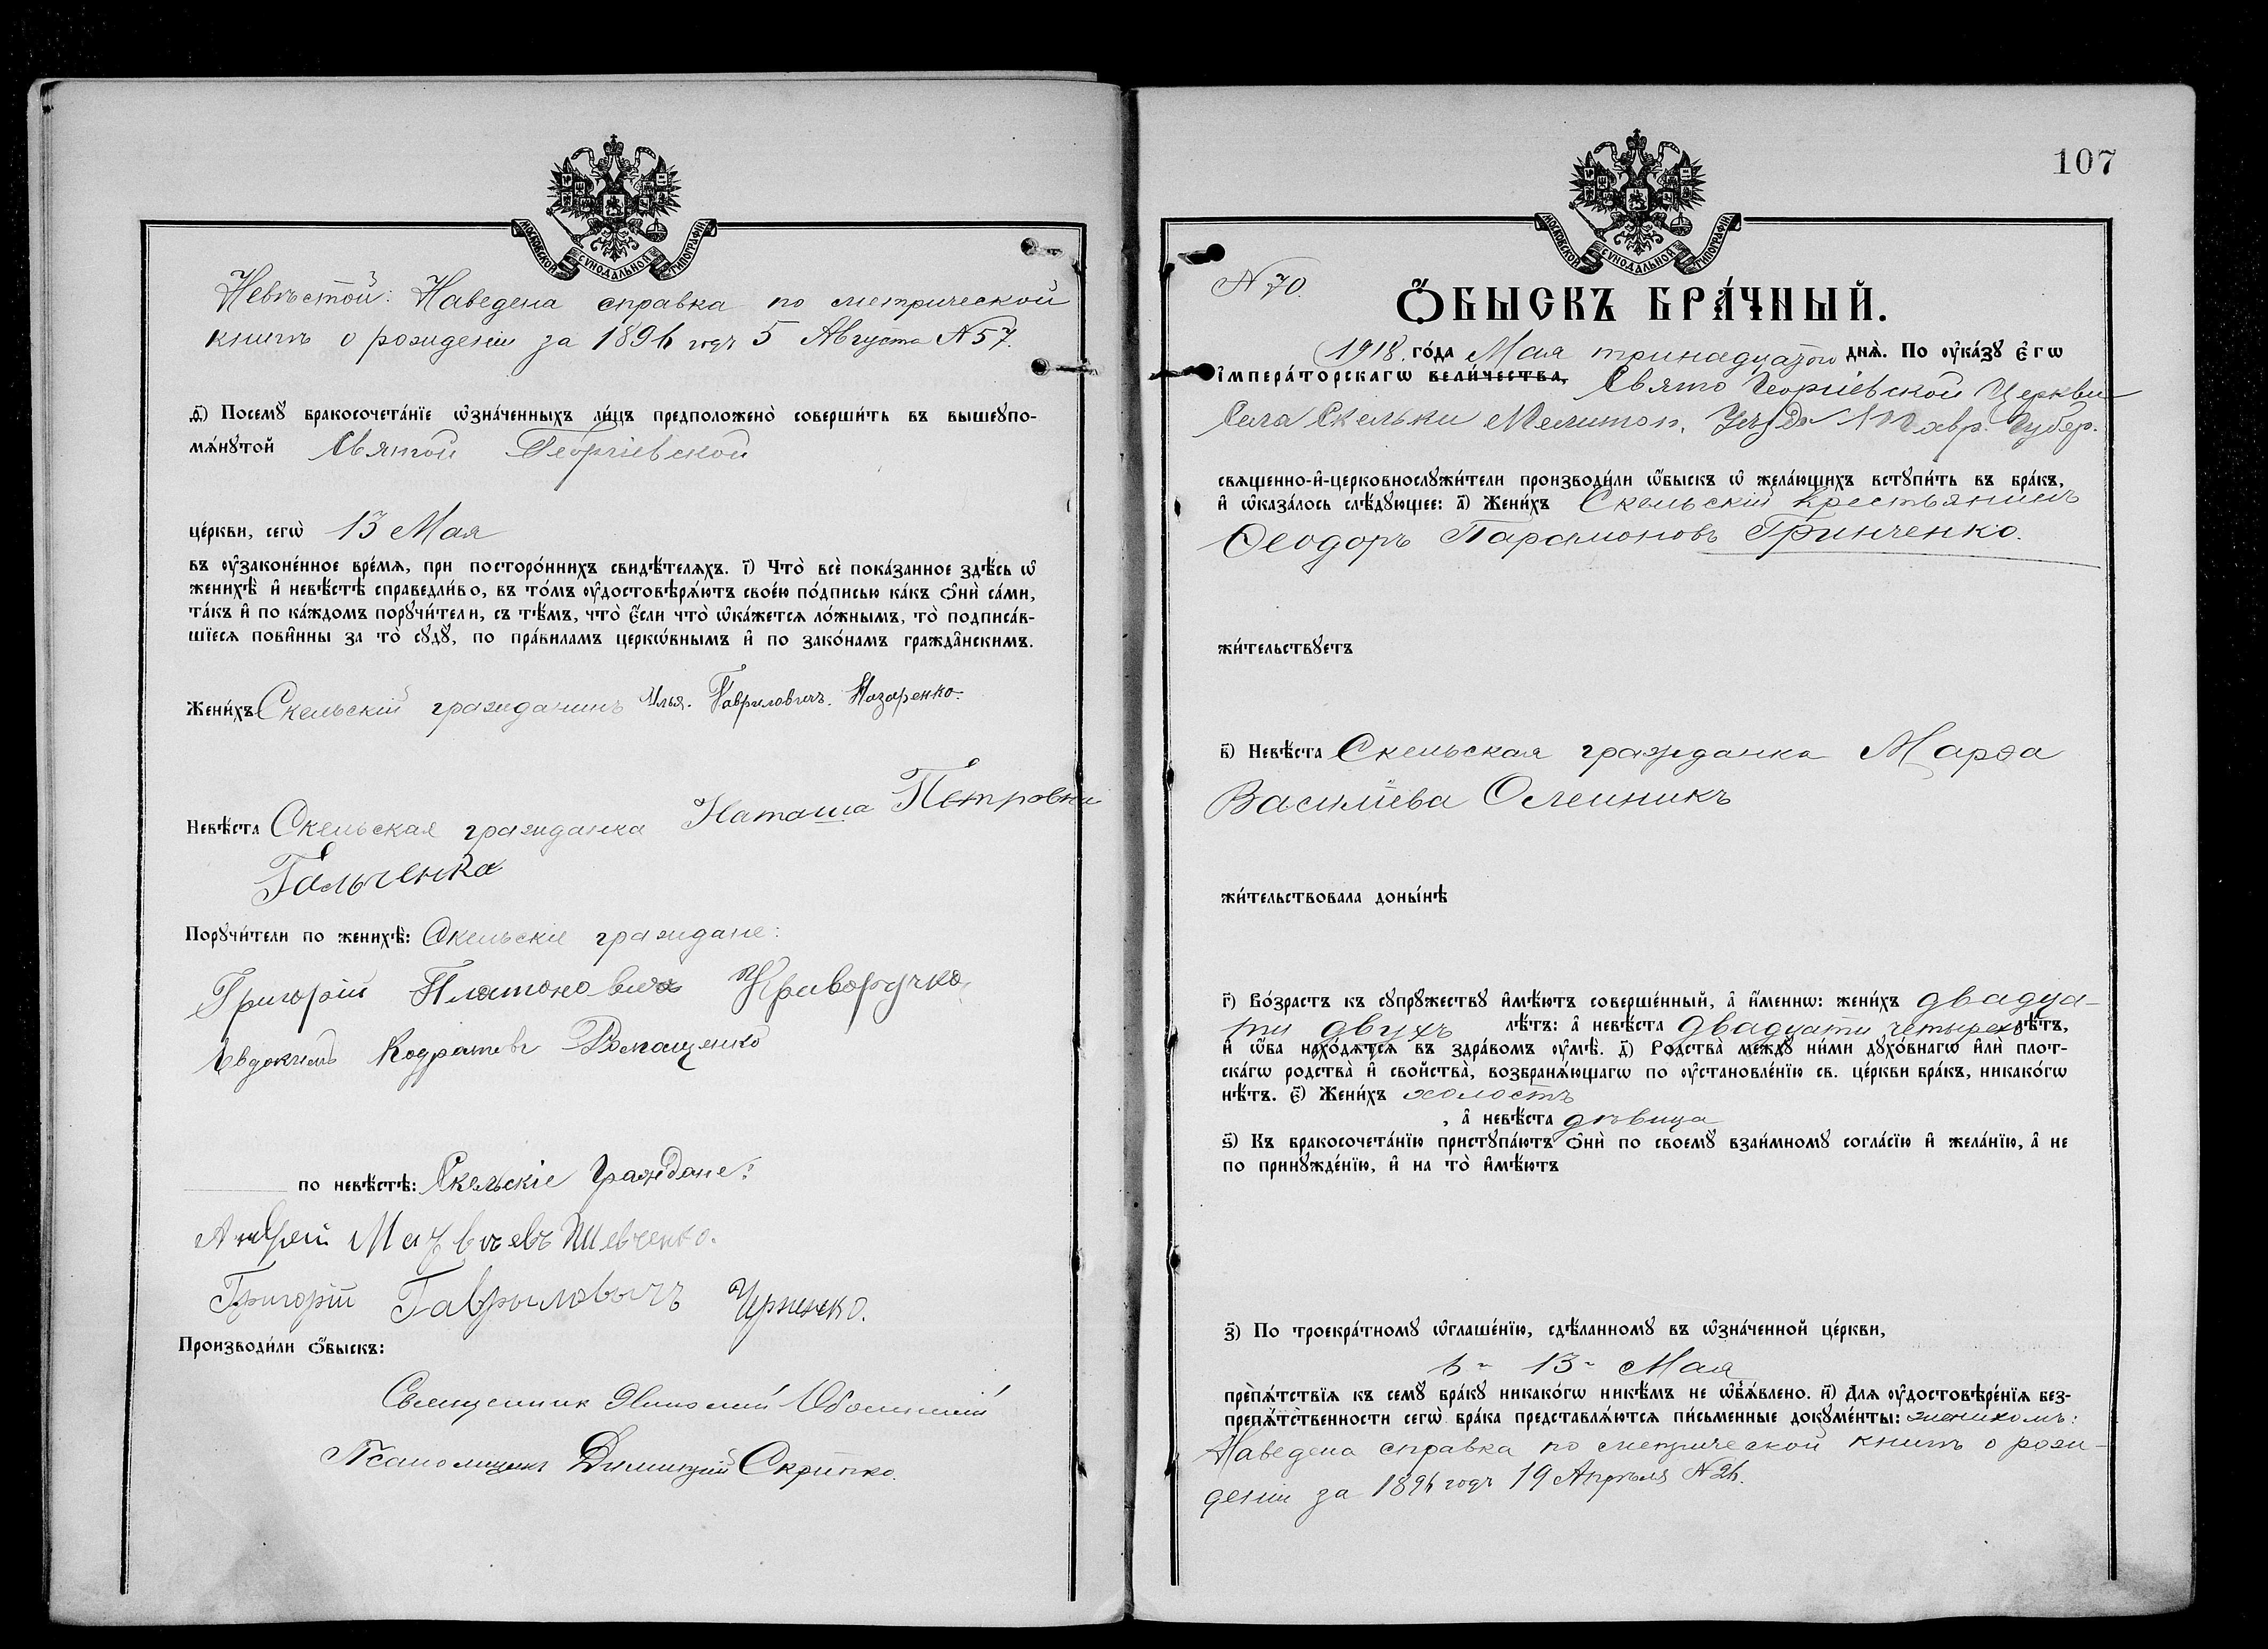 МОСКОВСКОЙ СУНОДАЛЬНОЙ ТИПОГРАФІИ
Невѣстой: Наведена справка по метрической
книгѣ о рожденіи за 1896 годъ 5 Августа N 57.
д҃) Посемꙋ̀ бракосочета́нїе ѡ҆зна́ченныхъ ли́цъ предположено̀ соверши́ть въ вышеꙋпо-
мѧ́нꙋтой Святой Георгіевской
це́ркви, сегѡ̀ 13 Мая
въ ᲂу҆законе́нное вре́мѧ, при посторо́ннихъ свидѣ́телѧхъ. і҃) Что̀ всѐ пока́занное здѣ́сь ѡ҆
женихѣ̀ и҆ невѣ́стѣ справедли́во, въ то́мъ ᲂу҆достовѣрѧ́ютъ свое́ю по́дписью ка́къ ѻ҆нѝ са́ми,
та́къ и҆ по ка́ждомъ порꙋчи́тели, съ тѣ́мъ, что̀ є҆́сли что̀ ѡ҆ка́жетсѧ ло́жнымъ, то̀ подписа́в-
шїесѧ пови́нны за то̀ сꙋдꙋ̀, по пра́виламъ церкѡ́внымъ и҆ по зако́намъ гражда̂нскимъ.
Жени́хъ Скельскій гражданинъ Илья. Гавриловичъ. Назаренко.
Невѣ́ста Скельская гражданка Наташа Петровна
Гальченка
Порꙋчи́тели по женихѣ̀: Скельскіе граждане:
Григорій Платоновичъ Криворучко
Евдокимъ Кодратовъ Ромащенко
по невѣ́стѣ: Скельскіе Граждане:
Андрей Матвѣевъ Шевченко.
Григорій Гаврыловычъ
Производи́ли ѻ҆́быскъ:
Священник Николай
Псаломщикъ Димитрій Скрипко.
107
МОСКОВСКОЙ СУНОДАЛЬНОЙ ТИПОГРАФІИ
N 70.
Ѻ҆́БЫСКЪ БРА́ЧНЫЙ.
1918. го́да Мая тринадцатого днѧ̀. По ᲂу҆ка́зꙋ є҆гѡ̀
і҆мпера́торскагѡ вели́чества, Свято Георгіевской Церкви
Села Скельки Мелитоп. Уѣзда Тавр. Губер.
свѧщенно-и҆-церковнослꙋжи́тели производи́ли ѡ҆́быскъ ѡ҆ жела́ющихъ встꙋпи́ть въ бра́къ,
и҆ ѡ҆каза́лось слѣ́дꙋющее: а҃) Жени́хъ Скельскій крестьянинъ
Ѳеодоръ Парамоновъ Гринченко.
жи́тельствꙋетъ
в҃) Невѣ́ста Скельская гражданка Марѳа
Василіева Олейникъ
жи́тельствовала доны́нѣ
г҃) Во́зрастъ къ сꙋпрꙋ́жествꙋ и҆мѣ́ютъ соверше́нный, а҆ и҆́меннѡ: жени́хъ двадца-
ти двухъ лѣ́тъ: а҆ невѣ́ста двадцати четырехъ лѣ́тъ,
и҆ ѡ҆́ба нахо́дѧтсѧ въ здра́вомъ ᲂу҆мѣ̀. д҃) Родства̀ междꙋ̀ ни́ми дꙋхо́внагѡ и҆лѝ плот-
ска́гѡ родства̀ и҆ сво́йства, возбранѧ́ющагѡ по ᲂу҆становле́нїю св. це́ркви бра́къ, никако́гѡ
нѣ́тъ. є҃) Жени́хъ холостъ
, а҆ невѣ́ста дѣвица
ѕ҃) Къ бракосочета́нїю пристꙋпа́ютъ ѻ҆нѝ по своемꙋ̀ взаи́мномꙋ согла́сїю и҆ жела́нїю, а҆ не
по принꙋжде́нїю, и҆ на то̀ и҆мѣ́ютъ
з҃) По троекра́тномꙋ ѡ҆глаше́нїю, сдѣ́ланномꙋ въ ѡ҆зна́ченной це́ркви,
6- 13- Мая
препѧ́тствїѧ къ семꙋ̀ бра́кꙋ никако́гѡ никѣ́мъ не ѡ҆б̾ѧ́влено. и҃) Длѧ ᲂу҆достовѣре́нїѧ без-
препѧ́тственности сегѡ̀ бра́ка представлѧ́ютсѧ пи́сьменные докꙋме́нты: женихомъ:
Наведена справка по метрической книгѣ о рож-
деніи за 1896 годъ 19 Апрѣля N 26.